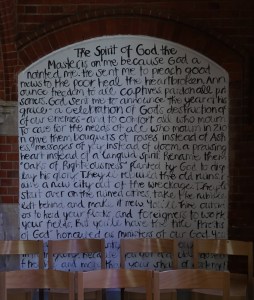 The Spirit of God the
Master, is on me because God a
nointed me. He sent me to preach good
news to the poor, heal the heartbroken, Ann
ounce freedom to all captives, pardon all pri
soners. God sent me to announce the year of his
grace - a celebration of Gods destruction
of our enemies - and to comfort all who mourn,
To care for the needs of all who mourn in Zion
give them bouquets of roses instead of Ash
es, messages of joy instead of doom, a praising
heart instead of a languid spirit. Rename them
Oaks of Righteousness Planted by God to disp
lay his glory. They'll rebuild the old ruins,
raise a new city out of the wreckage. They'll
start over on the ruined cities, take the rubble
left behind and make it new. You'll hire outsid
ers to herd your flocks and foreigners to work
your fields. But you'll have the title Priests
of God honoured as ministers of our God. Yo